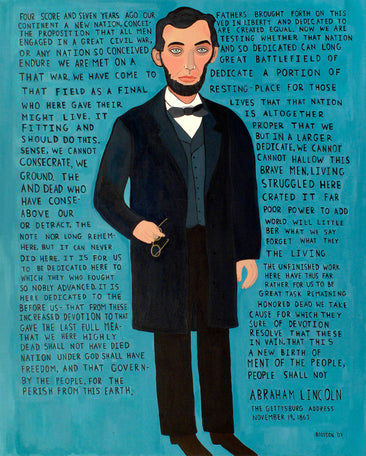 FOUR SCORE AND SEVEN YEARS AGO OUR FATHERS BROUGHT FORTH ON THIS
CONTINENT A NEW NATION, CONCEI- VED IN LIBERTY AND DEDICATED TO
THE PROPOSITION THAT ALL MEN ARE CREATED EQUAL. NOW WE ARE
ENGAGED IN A GREAT CIVIL WAR, TESTING WHETHER THAT NATION
OR ANY NATION SO CONCEIVED AND SO DEDICATED CAN LONG
ENDURE WE ARE MET ON A GREAT BATTLEFIELD OF
THAT WAR. WE HAVE COME TO DEDICATE A PORTION OF
THAT FIELD AS A FINAL RESTING-PLACE FOR THOSE
WHO HERE GAVE THEIR LIVES THAT THAT NATION
MIGHT LIVE. IT IS ALTOGETHER
FITTING AND PROPER THAT WE
SHOULD DO THIS. BUT IN A LARGER
SENSE, WE CANNOT DEDICATE, WE CANNOT
CONSECRATE, WE CANNOT HALLOW THIS
GROUND. THE BRAVE MEN, LIVING
AND DEAD WHO STRUGGLED HERE
HAVE CONSE- CRATED IT FAR
ABOVE OUR POOR POWER TO ADD
OR DETRACT. THE WORLD WILL LITTLE
NOTE NOR LONG REMEM- BER WHAT WE SAY
HERE, BUT IT CAN NEVER FORGET WHAT THEY
DID HERE. IT IS FOR US THE LIVING
TO BE DEDICATED HERE TO THE UNFINISHED WORK
WHICH THEY WHO FOUGHT HERE HAVE THUS FAR
SO NOBLY ADVANCED. IT IS RATHER FOR US TO BE
HERE DEDICATED TO THE GREAT TASK REMAINING
BEFORE US - THAT FROM THESE HONORED DEAD WE TAKE
INCREASED DEVOTION TO THAT CAUSE FOR WHICH THEY
GAVE THE LAST FULL MEA- SURE OF DEVOTION
THAT WE HERE HIGHLY RESOLVE THAT THESE
DEAD SHALL NOT HAVE DIED IN VAIN, THAT THIS
NATION UNDER GOD SHALL HAVE A NEW BIRTH OF
FREEDOM, AND THAT GOVERN- MENT OF THE PEOPLE,
BY THE PEOPLE, FOR THE PEOPLE SHALL NOT
PERISH FROM THIS EARTH.
ABRAHAM LINCOLN
THE GETTYSBURG ADDRESS
NOVEMBER 19, 1863